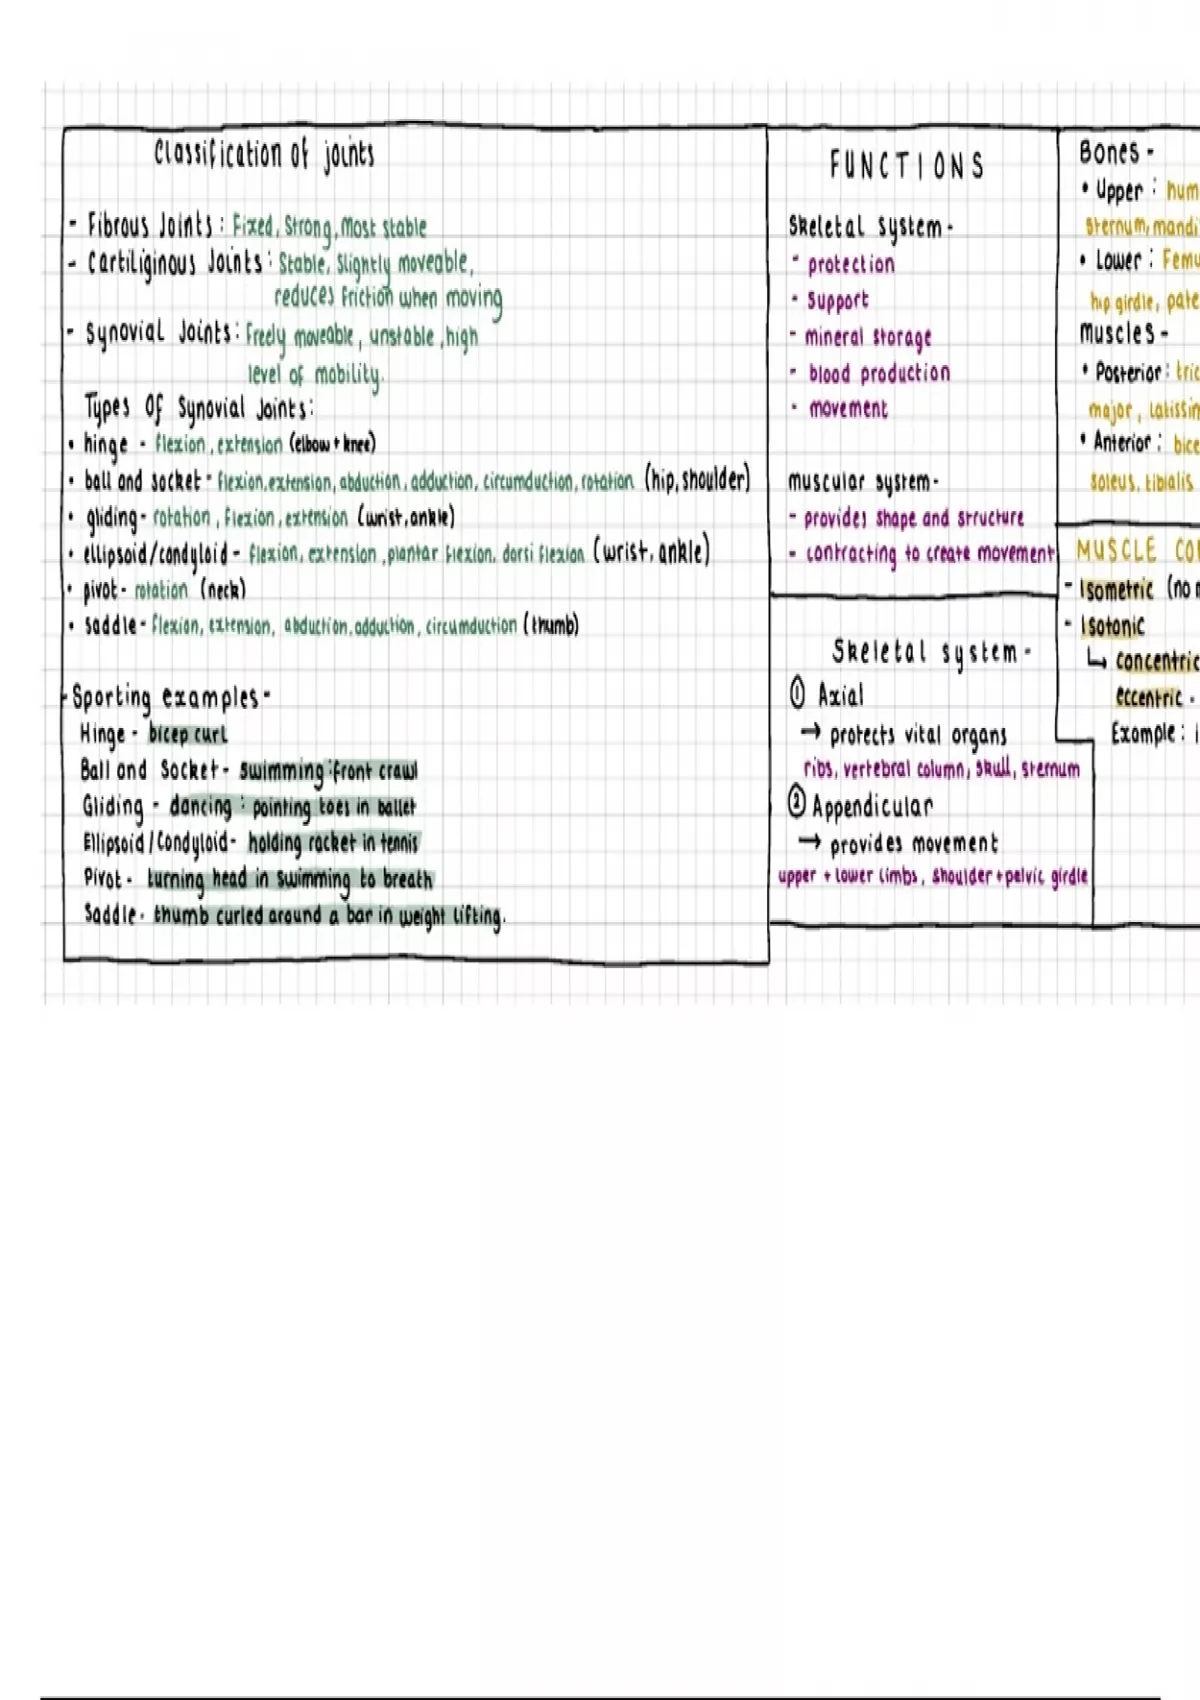 Classification of joints
- Fibrous Joints: Fixed, Strong, Most stable
- Cartiliginous Joints: Stable, Slightly moveable,
reduces friction when moving
- Synovial Joints: Freely moveable, unstable, high
level of mobility.
Types Of Synovial Joints:
• hinge - flexion, extension (elbow + knee)
• ball and socket - flexion, extension, abduction, adduction, circumduction, rotation (hip, shoulder)
• gliding - rotation, flexion, extension (wrist, ankle)
• ellipsoid/condyloid - flexion, extension, plantar flexion, dorsi flexion (wrist, ankle)
• pivot - rotation (neck)
• saddle - flexion, extension, abduction, adduction, circumduction (thumb)
- Sporting examples -
Hinge - bicep curl
Ball and Socket - swimming: front crawl
Gliding - dancing: pointing toes in ballet
Ellipsoid/Condyloid - holding racket in tennis
Pivot - turning head in swimming to breath
Saddle - thumb curled around a bar in weight lifting.
FUNCTIONS
Skeletal system -
- protection
- support
- mineral storage
- blood production
- movement
muscular system -
- provides shape and structure
- contracting to create movement
Skeletal system -
① Axial
→ protects vital organs
ribs, vertebral column, skull, sternum
② Appendicular
→ provides movement
upper + lower limbs, shoulder + pelvic girdle
Bones -
• Upper: hum
sternum, mandi
• Lower: Femu
hip girdle, pate
Muscles -
• Posterior: tric
major, latissim
• Anterior: bice
soleus, tibialis
MUSCLE CO
- Isometric (no
- Isotonic
↳ concentric
eccentric -
Example: i